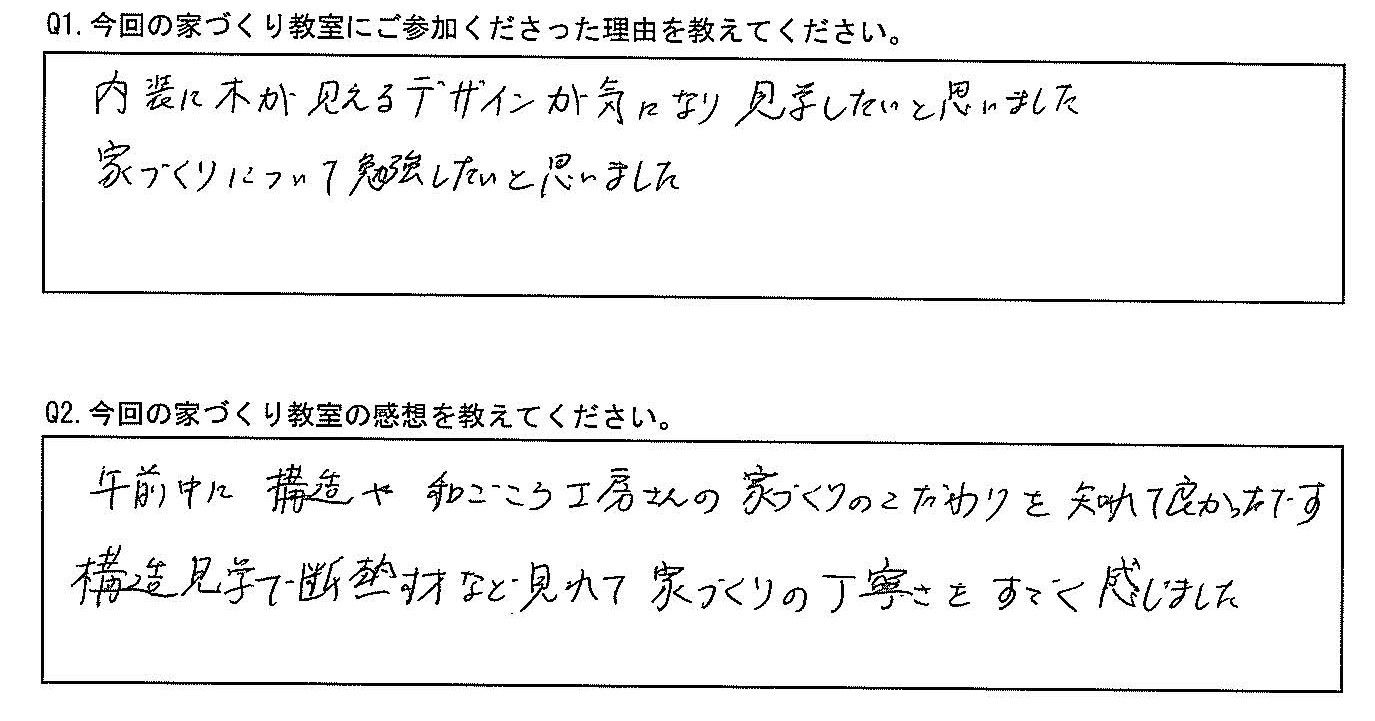 Q1. 今回の家づくり教室にご参加くださった理由を教えてください。
内装に木が見えるデザインが気になり見学したいと思いました
家づくりについて勉強したいと思いました
Q2. 今回の家づくり教室の感想を教えてください。
午前中に構造や和ごころ工房さんの家づくりのこだわりを知れて良かったです
構造見学で断熱材など見れて家づくりの丁寧さをすごく感じました